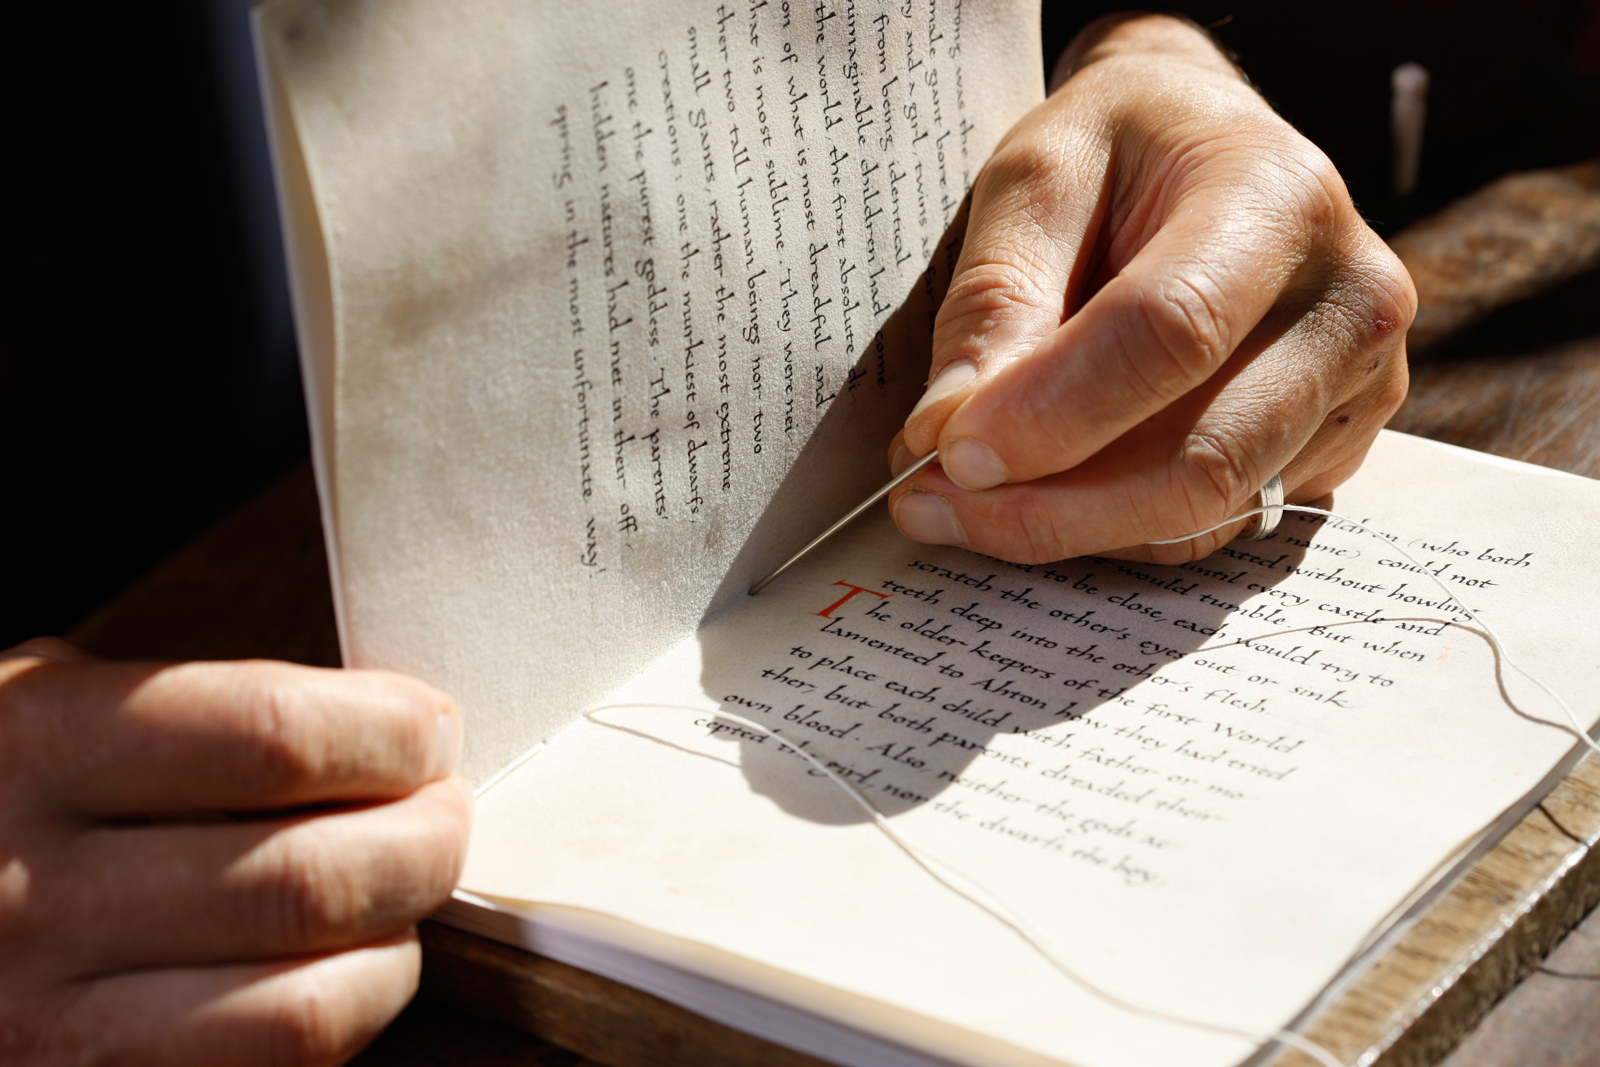 was the
male giant bore
and a girl, twins as far
from being identical.
children had come
the world, the first absolute di-
of what is most dreadful and
is most sublime. They were nei-
ther two tall human beings nor two
small giants, rather the most extreme
creations: one the murkiest of dwarfs,
one the purest goddess. The parents'
hidden natures had met in their off-
spring in the most unfortunate way!
children (who both
name) could not
without howling
until every castle and
would tumble. But when
to be close, each would try to
scratch the other's eyes out or sink
teeth deep into the other's flesh.
The older keepers of the first World
lamented to Ahton how they had tried
to place each child with father or mo-
ther, but both parents dreaded their
own blood. Also, neither the gods ac-
cepted the girl, nor the dwarfs the boy,